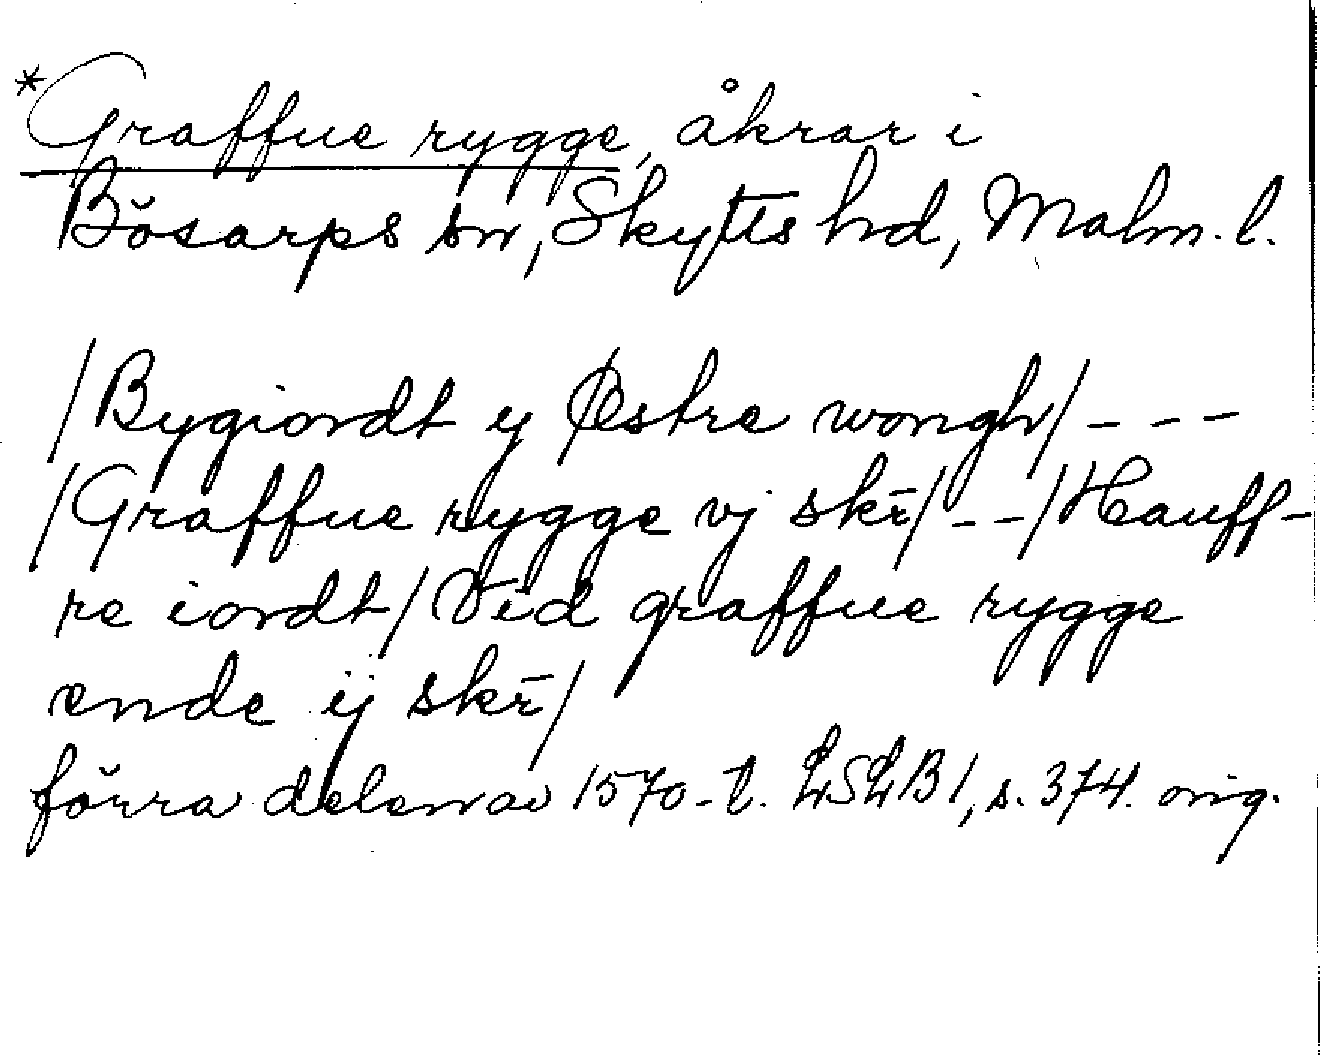 *Graffue rygge, åkrar i
Bösarps sn, Skytts hd, Malm. l.
/Bygiordt y Østre wongh/ - - -
/Graffue rygge vj skr̄/ - - /Hauff-
re iordt/ Ved graffue rygge
ende ij skr̄/
förra delen av 1570-t. LSLB 1, s. 374. orig.